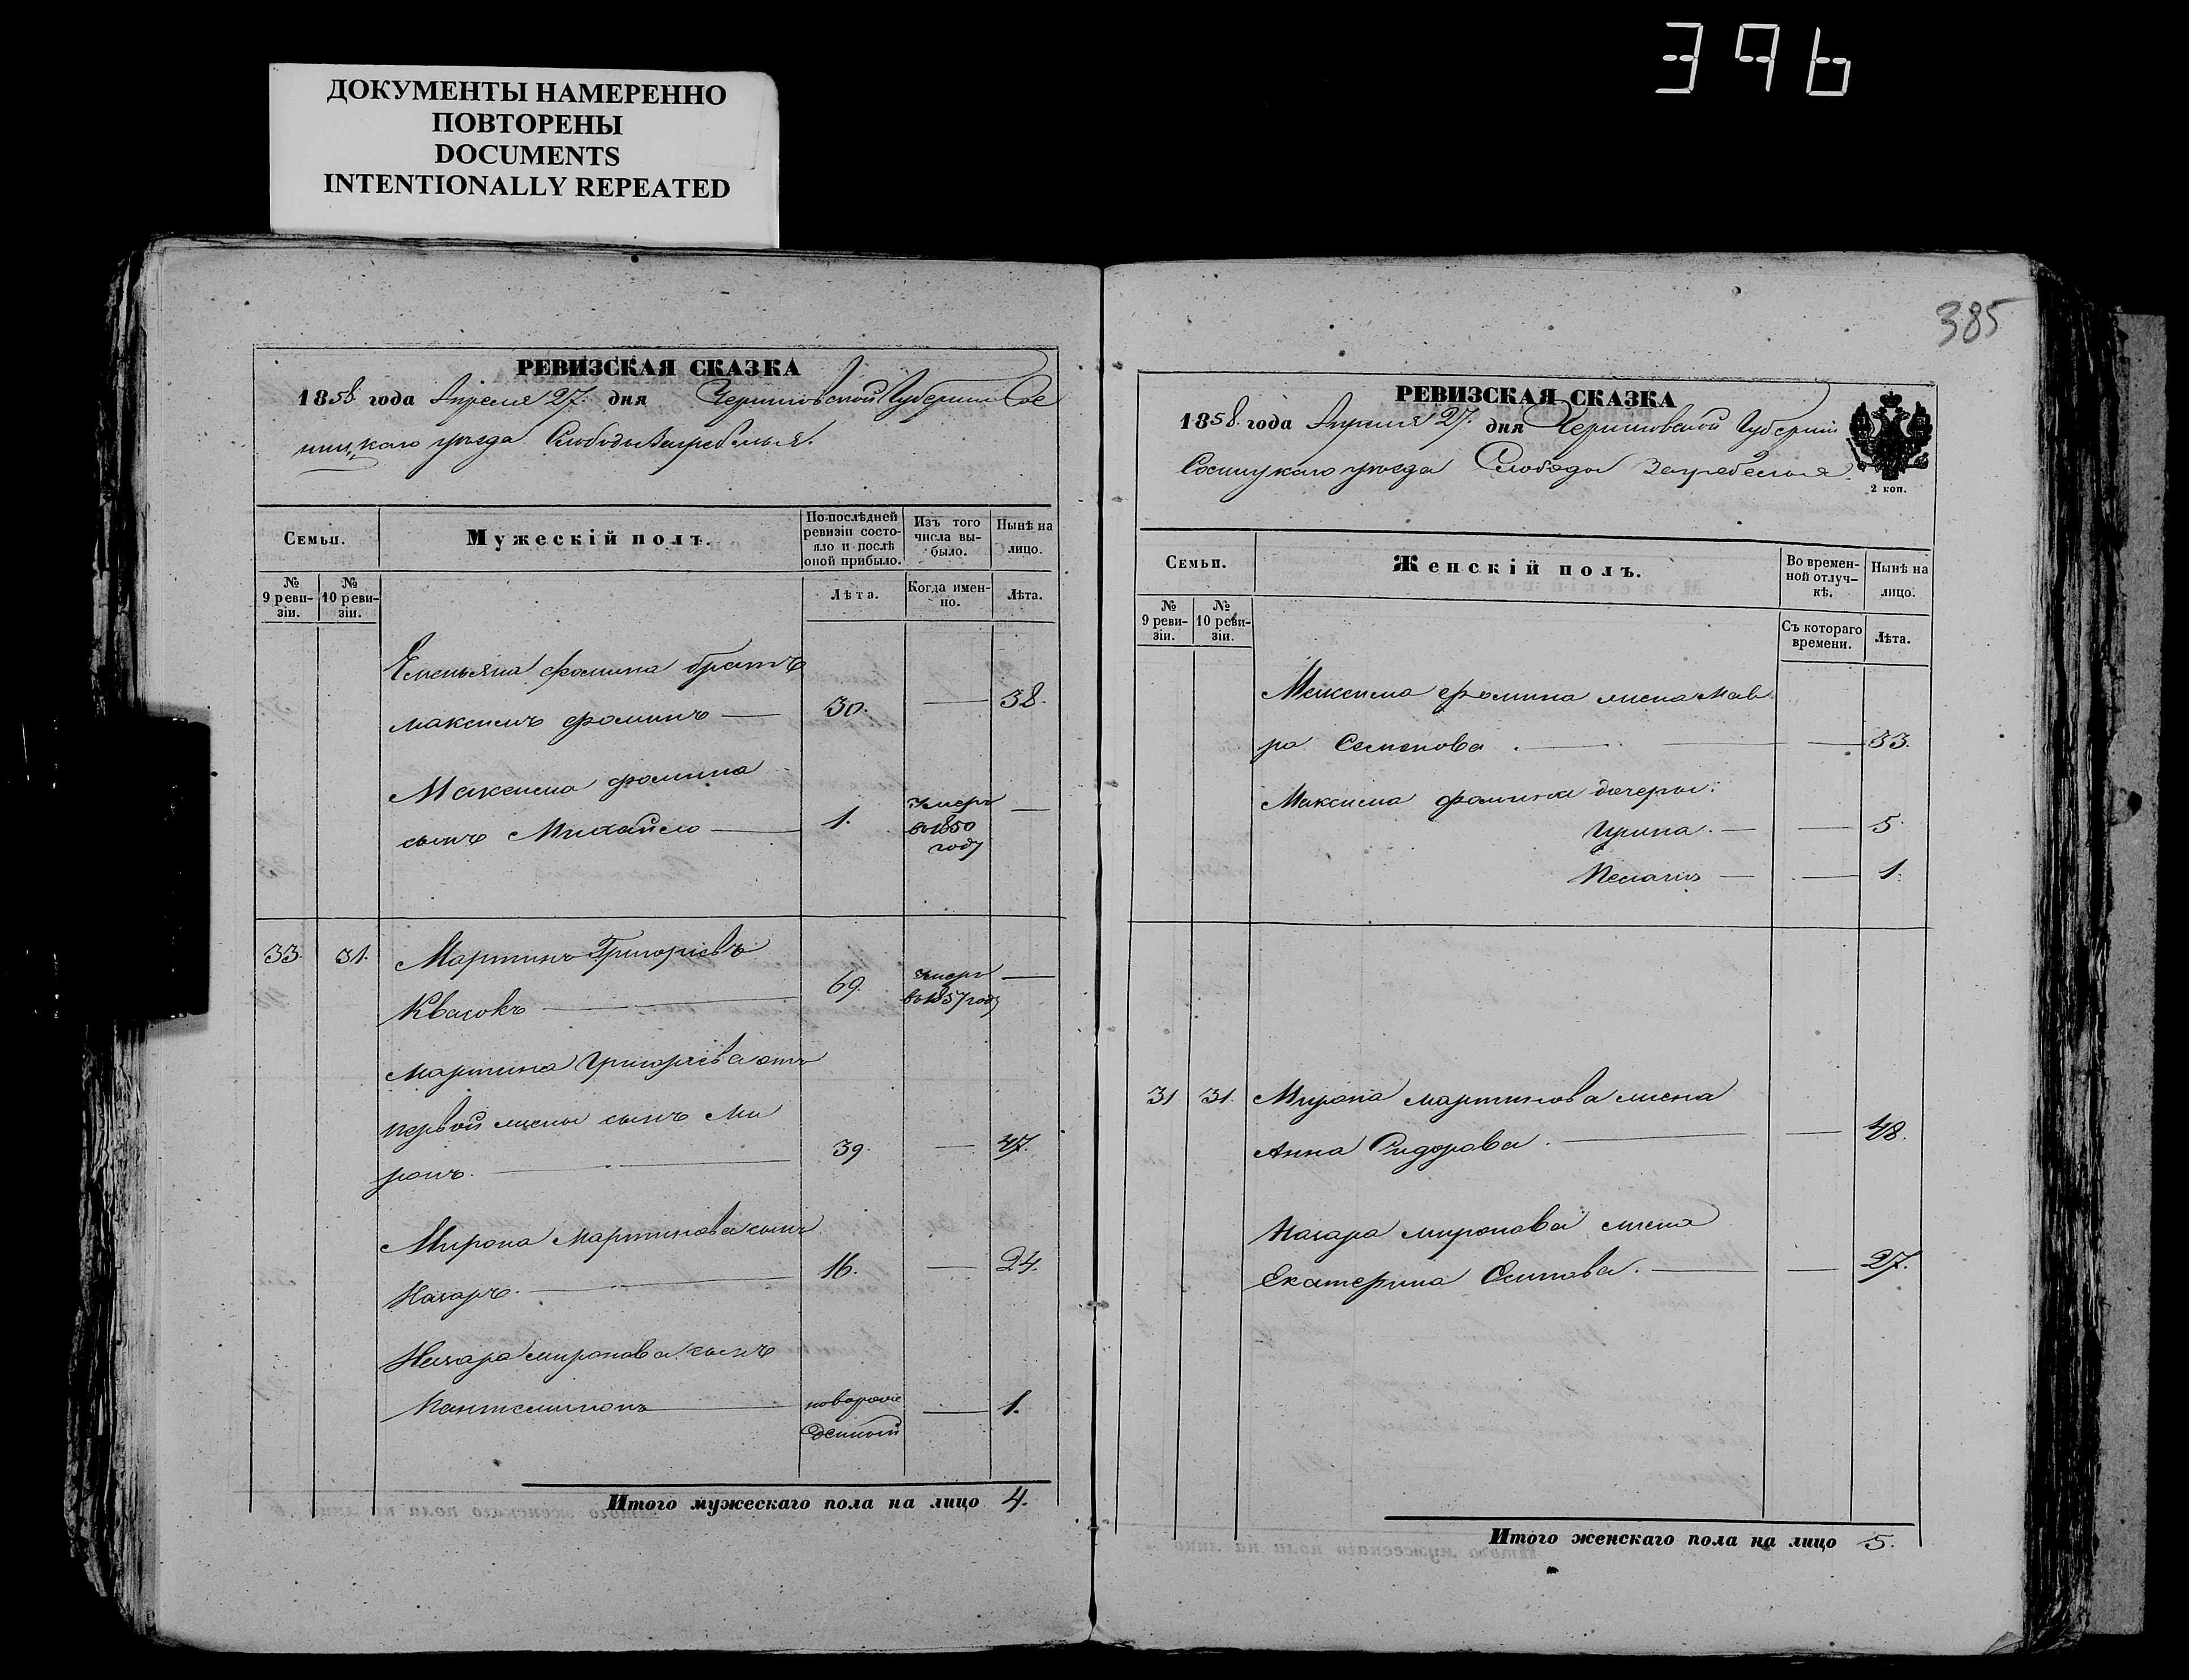 396
ДОКУМЕНТЫ НАМЕРЕННО
ПОВТОРЕНЫ
DOCUMENTS
INTENTIONALLY REPEATED
РЕВИЗСКАЯ СКАЗКА
1858 года Апреля 27. дня Черниговской Губернии Сос
ницкаго уѣзда Слободы Загребелья.
Семьи.
Мужескій полъ.
По послѣдней ревизіи состояло и послѣ оной прибыло.
Изъ того числа выбыло.
Нынѣ на лицо.
№ 9 ревизіи.
№ 10 ревизіи.
Лѣта.
Когда именно.
Лѣта.
Емельяна Фомина братъ
Максимъ Фоминъ — 30. — 38.
Максима Фомина
сынъ Михайло — 1. умеръ в 1850 году —
33. 31. Мартинъ Григорьевъ
Квасокъ — 69. умеръ в 1857 году —
Мартина Григорьева отъ
первой жены сынъ Ми
ронъ. — 39. — 47.
Мирона Мартинова сынъ
Назаръ. — 16. — 24.
Назара Миронова сынъ
Пантелимонъ — новорож
денный — 1.
Итого мужескаго пола на лицо 4.
385
РЕВИЗСКАЯ СКАЗКА
1858. года Апреля 27. дня Черниговской Губернии
Сосницкаго уѣзда Слободы Загребелья
2 коп.
Семьи.
Женскій полъ.
Во временной отлучкѣ.
Нынѣ на лицо.
№ 9 ревизіи.
№ 10 ревизіи.
Съ котораго времени.
Лѣта.
Максима Фомина жена Мав
ра Семенова. — — 33.
Максима Фомина дочери:
Ирина. — — 5.
Пелагия — — 1.
31 31. Мирона Мартинова жена
Анна Сидорова. — — 48.
Назара Миронова жена
Екатерина Осипова. — — 27.
Итого женскаго пола на лицо 5.